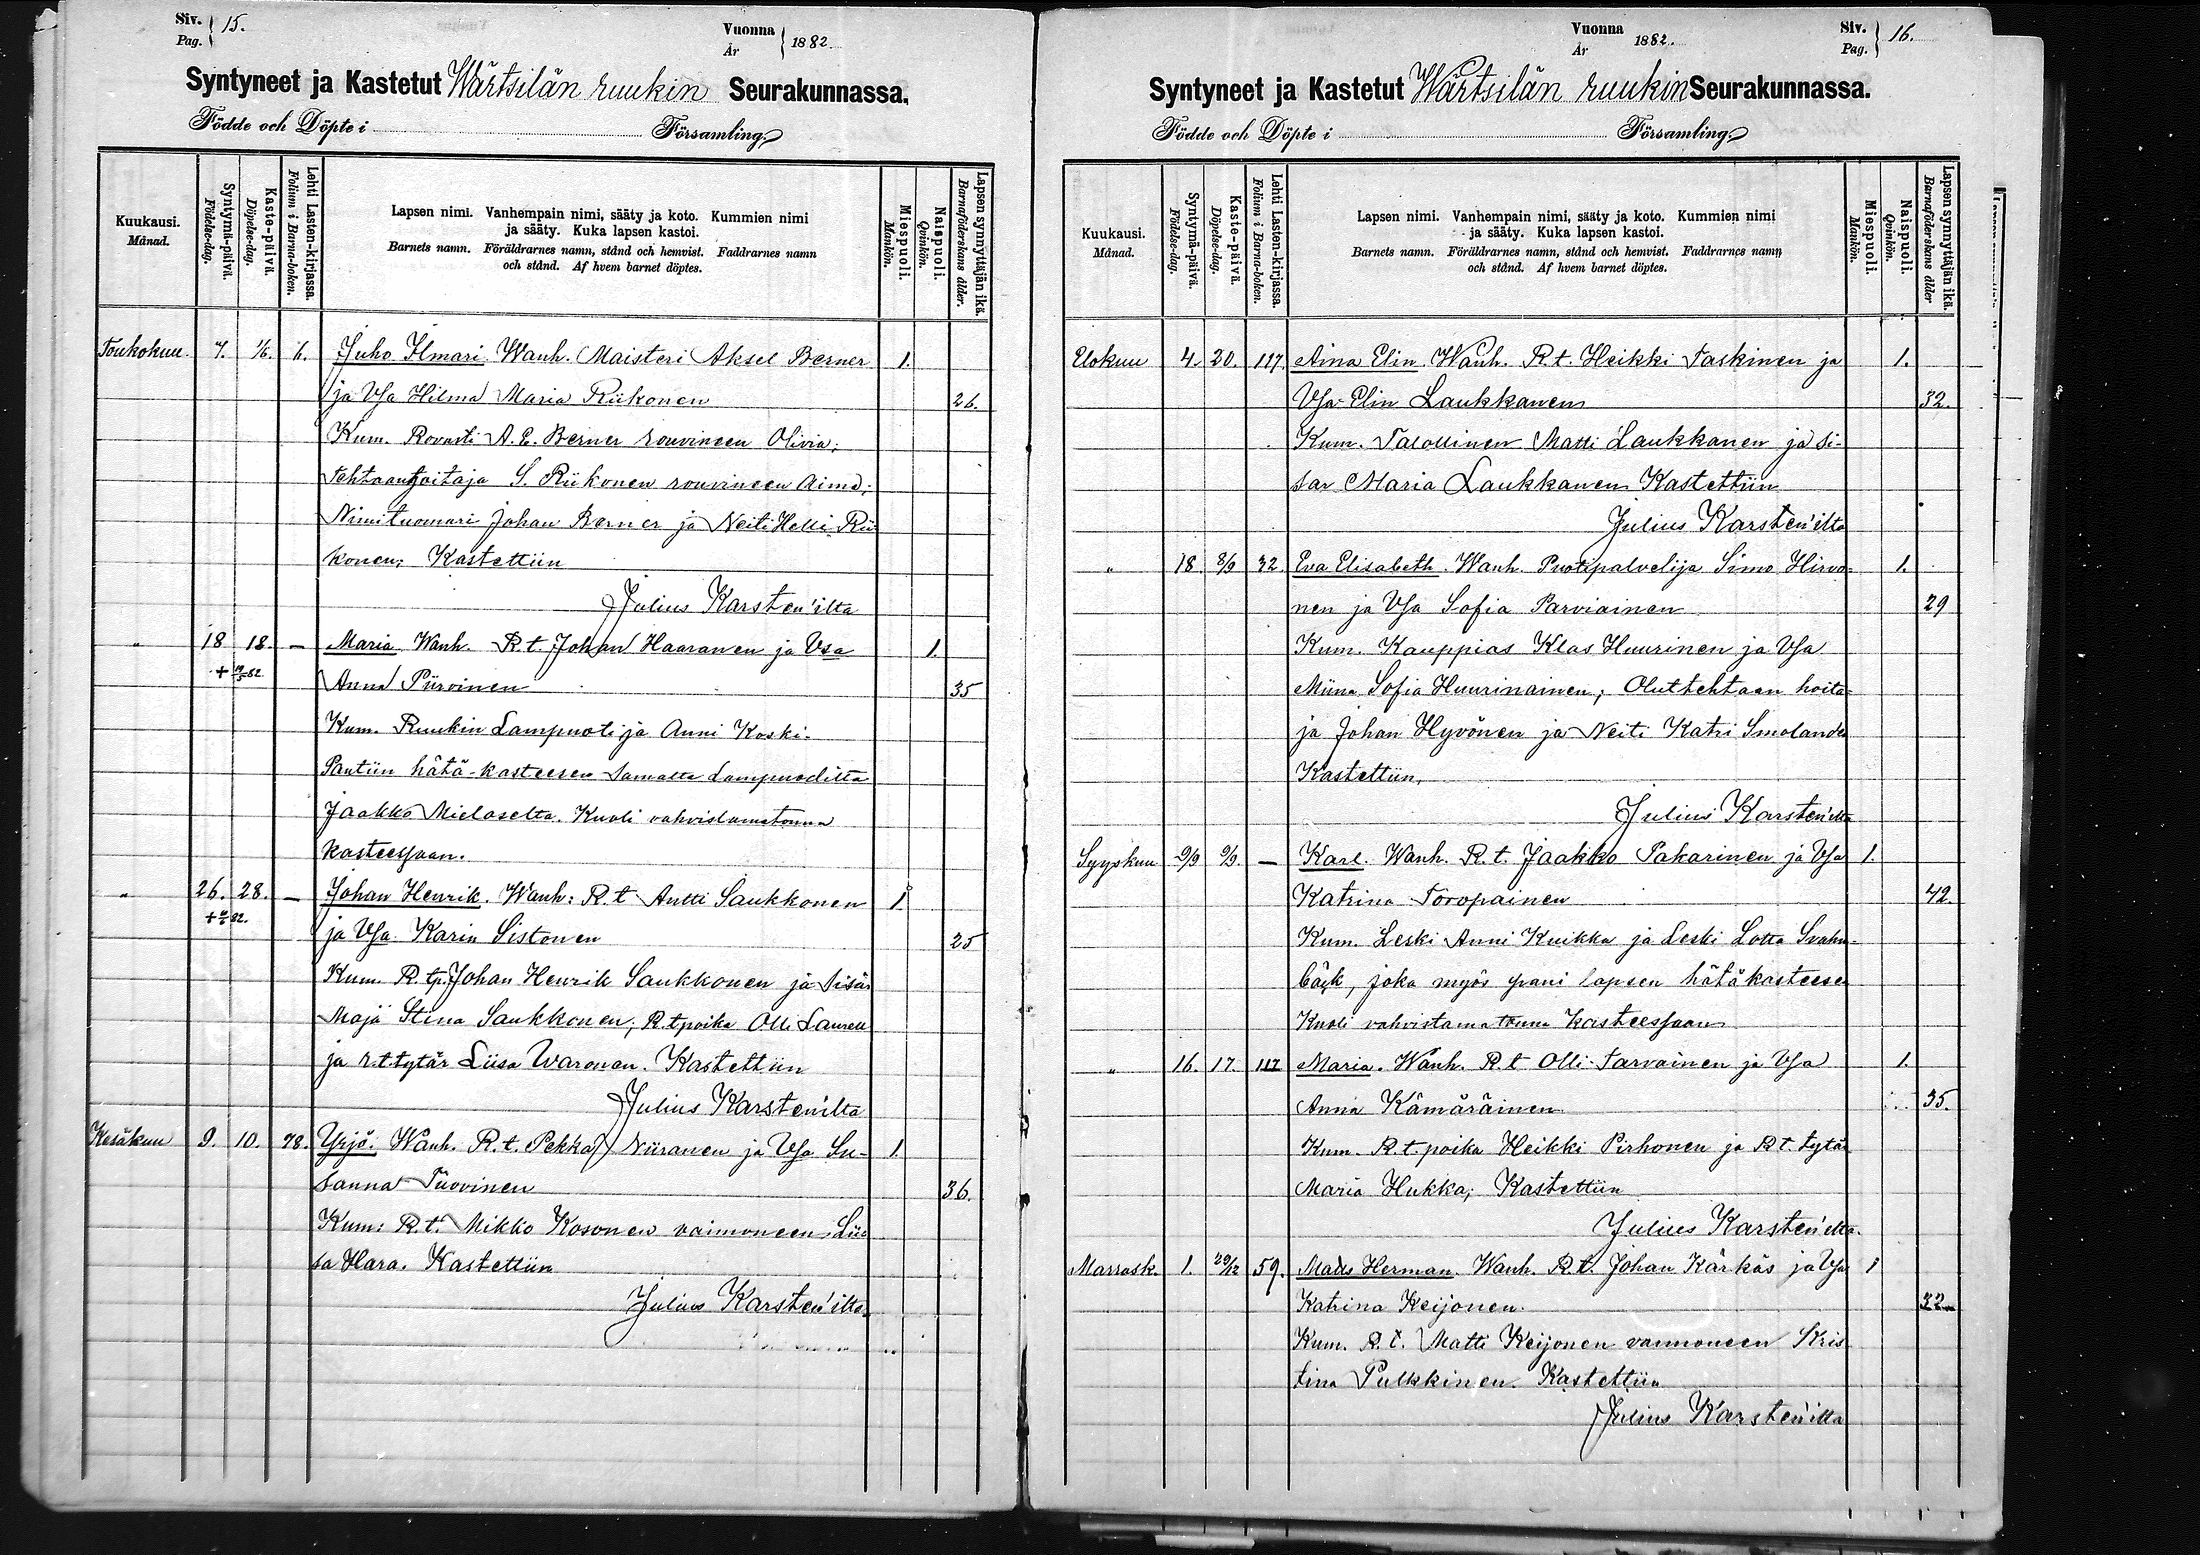 Siv. Pag. 15.
Vuonna År 1882.
Syntyneet ja Kastetut Wärtsilän ruukin Seurakunnassa.
Födde och Döpte i Församling.
Kuukausi. Månad.
Syntymä-päivä. Födelse-dag.
Kaste-päivä. Döpelse-dag.
Lehti Lasten-kirjassa. Folium i Barna-boken.
Lapsen nimi. Vanhempain nimi, sääty ja koto. Kummien nimi
ja sääty. Kuka lapsen kastoi.
Barnets namn. Föräldrarnes namn, stånd och hemvist. Faddrarnes namn
och stånd. Af hvem barnet döptes.
Miespuoli. Mankön.
Naispuoli. Qvinkön.
Lapsen synnyttäjän ikä. Barnaföderskans ålder.
Toukokuu. 7. 1/6. 6. Juho Ilmari. Wanh. Maisteri Aksel Berner 1.
ja Vsa Hilma Maria Riikonen 26.
Kum. Rovasti A. E. Berner rouvineen Olivia;
tehtaanhoitaja S. Riikonen rouvineen Aima;
Nimituomari Johan Berner ja Neiti Helli Rii-
konen; Kastettiin
Julius Karsten'ilta
" 18 18. — Maria Wanh. R.t. Johan Haaranen ja Vsa 1.
+ 19/5 82. Anna Piiroinen 35
Kum. Ruukin Lampuoti ja Anni Koski.
Pantiin hätä-kasteesen samalta Lampuodilta
Jaakko Mielaselta. Kuoli vahvistamatonna
kasteessaan.
" 26. 28. — Johan Henrik. Wanh: R.t Antti Saukkonen 1.
ja Vsa. Karin Sistonen 25
Kum. R.tp. Johan Henrik Saukkonen ja sisär
Maja Stina Saukkonen; R.t.poika Olli Laurell
ja r.t.tytär Liisa Waronen. Kastettiin
Julius Karsten'ilta
Kesäkuu 9. 10. 78. Yrjö. Wanh. R.t. Pekka Niiranen ja Vsa Su- 1.
sanna Tuovinen 36.
Kum: R.t. Mikko Kosonen vaimoneen Lii-
sa Hara. Kastettiin
Julius Karsten'ilta.
Vuonna År 1882.
Siv. Pag. 16.
Syntyneet ja Kastetut Wärtsilän ruukin Seurakunnassa.
Födde och Döpte i Församling.
Kuukausi. Månad.
Syntymä-päivä. Födelse-dag.
Kaste-päivä. Döpelse-dag.
Lehti Lasten-kirjassa. Folium i Barna-boken.
Lapsen nimi. Vanhempain nimi, sääty ja koto. Kummien nimi
ja sääty. Kuka lapsen kastoi.
Barnets namn. Föräldrarnes namn, stånd och hemvist. Faddrarnes namn
och stånd. Af hvem barnet döptes.
Miespuoli. Mankön.
Naispuoli. Qvinkön.
Lapsen synnyttäjän ikä. Barnaföderskans ålder
Elokuu 4. 20. 117. Aina Elin. Wanh. R.t. Heikki Taskinen ja 1.
Vsa Elin Laukkanen 32.
Kum. Talollinen Matti Laukkanen ja si-
sar Maria Laukkanen Kastettiin
Julius Karsten'ilta
" 18. 8/9 32. Eva Elisabeth. Wanh. Puotipalvelija Simo Hirvo- 1.
nen ja Vsa Sofia Parviainen 29
Kum. Kauppias Klas Huurinen ja Vsa
Miina Sofia Huurinainen; Oluttehtaan hoita-
ja Johan Hyvönen ja Neiti Katri Smolander
Kastettiin,
Julius Karsten'ilta
Syyskuu 9/9 9/9 — Karl. Wanh. R.t. Jaakko Pakarinen ja Vsa 1.
Katrina Toropainen 42.
Kum. Leski Anni Kuikka ja Leski Lotta Svahn-
bäck, joka myös pani lapsen hätäkasteesen
Kuoli vahvistamatonna kasteessaan
" 16. 17. 112 Maria. Wanh. R.t Olli Tarvainen ja Vsa 1.
Anna Kämäräinen 35.
Kum. R.t.poika Heikki Pirhonen ja R.t.tytär
Maria Hukka; Kastettiin
Julius Karsten'ilta.
Marrask. 1. 29/12 59. Mats Herman. Wanh. R.t. Johan Kärkäs ja Vsa 1
Katrina Keijonen. 32
Kum. R.t. Matti Keijonen vaimoneen Kris
tina Pulkkinen. Kastettiin
Julius Karsten'ilta